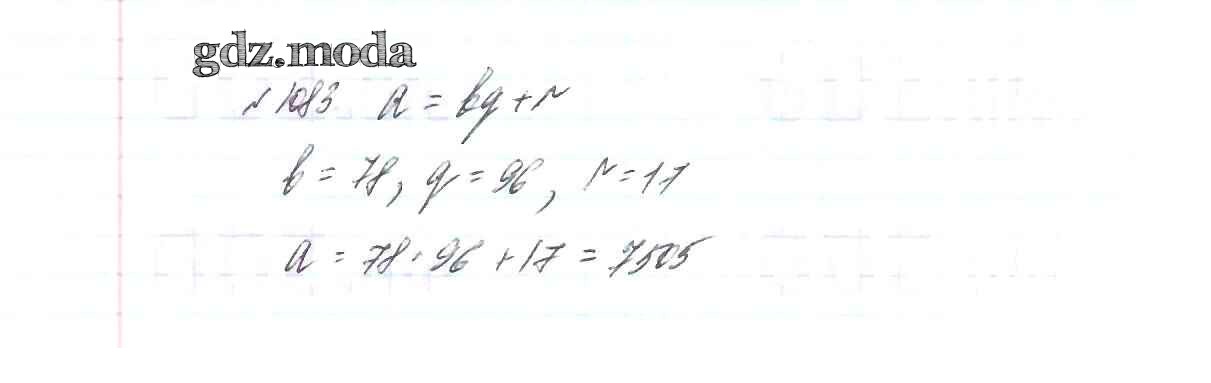 gdz.moda
№1083 a = bq + r
b = 78, q = 96, r = 17
a = 78 · 96 + 17 = 7505